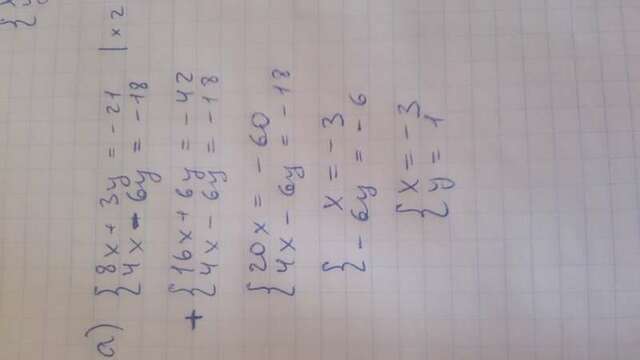 а) { 8x + 3y = -21 | × 2
{ 4x - 6y = -18
+ { 16x + 6y = -42
{ 4x - 6y = -18
{ 20x = -60
{ 4x - 6y = -18
{ x = -3
{ -6y = -6
{ x = -3
{ y = 1